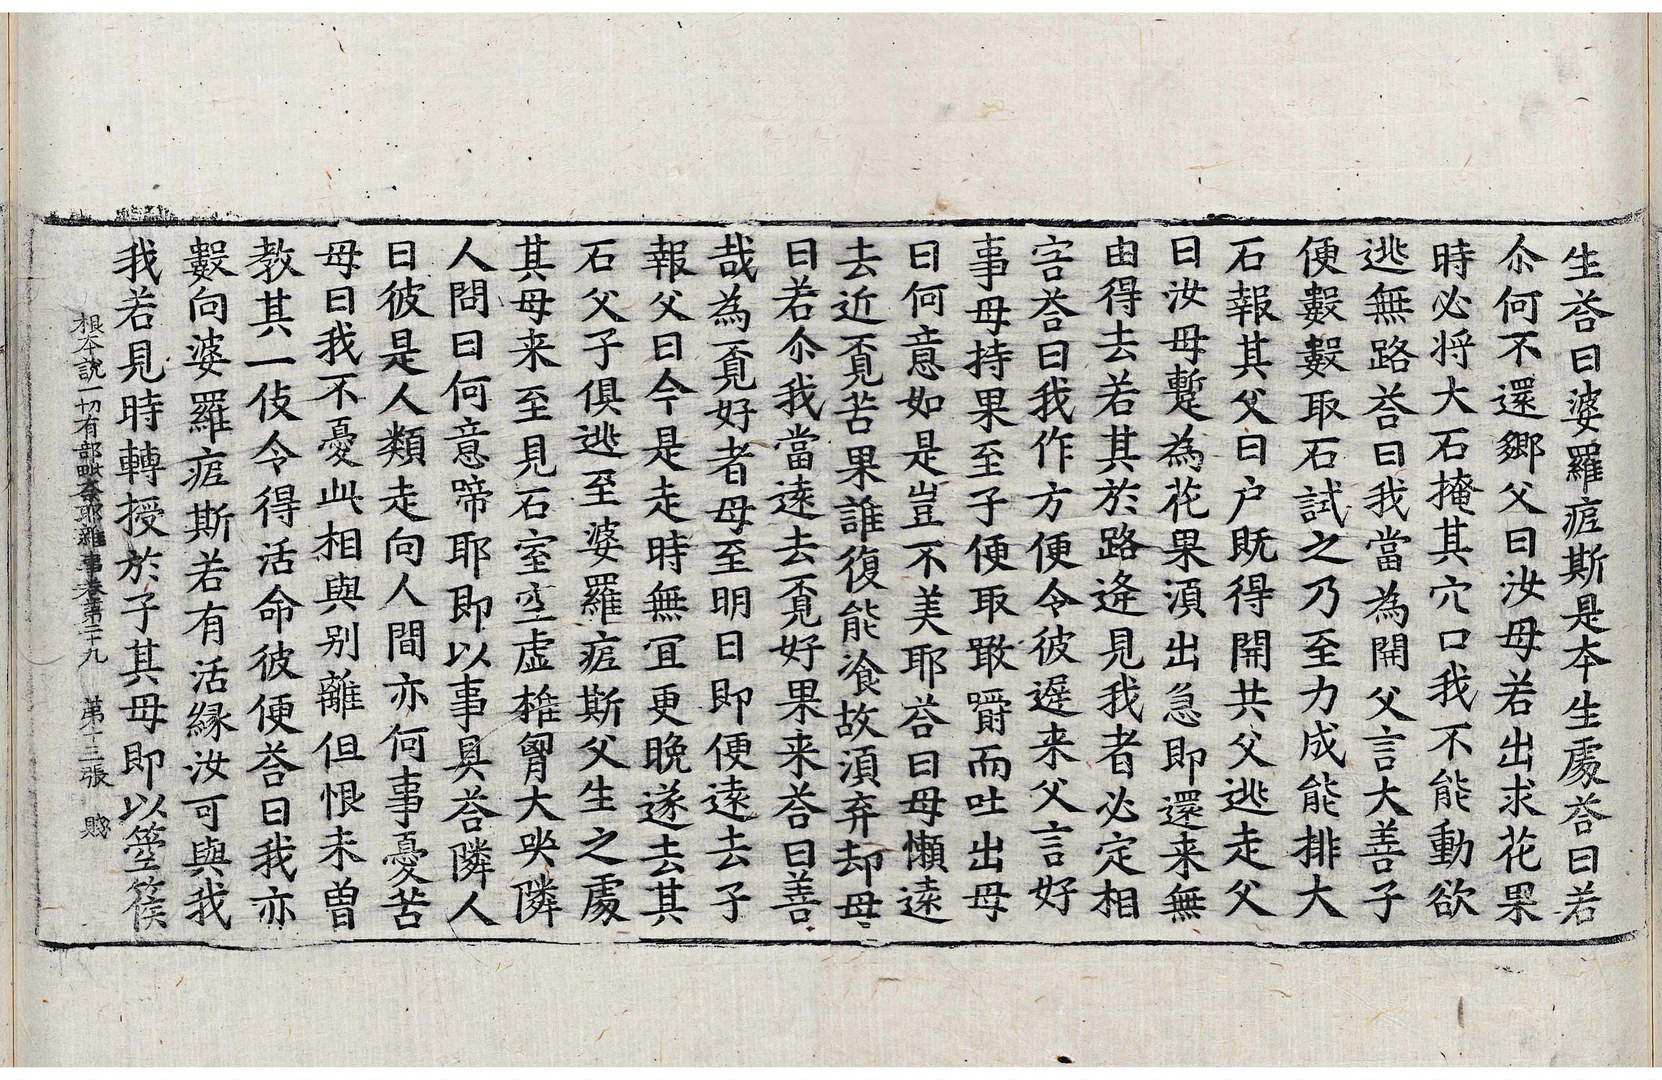 生荅曰婆羅痆斯是夲生處荅曰若
尒何不還鄉父曰汝母若出求花果
時必将大石掩其穴口我不能動欲
逃無路荅曰我當為開父言大善子
便數數取石試之乃至力成能排大
石報其父曰户既得開共父逃走父
曰汝母蹔為花果湏出急即還来無
由得去若其於路逄見我者必定相
害荅曰我作方便令彼遲来父言好
事母持果至子便取噉嚼而吐出母
曰何意如是豈不美耶荅曰母懶遠
去近覔苦果誰復能飡故湏弃却母
曰若尒我當遠去覔好果来荅曰善
哉為覔好者母至明日即便遠去子
報父曰今是走時無冝更晚遂去其
石父子俱逃至婆羅痆斯父生之處
其母来至見石室空虚搥胷大哭隣
人問曰何意啼耶即以事具荅隣人
曰彼是人類走向人間亦何事憂苦
母曰我不憂此相與别離但恨未曽
教其一伎令得活命彼便荅曰我亦
數向婆羅痆斯若有活縁汝可與我
我若見時轉授於子其母即以箜篌
根夲說一切有部毗奈耶雜事卷第二十九 第十三張 賤